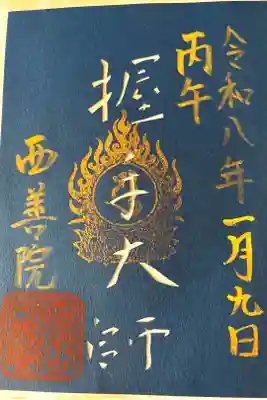 令和八年
一月九日
丙午
握手大師
西善院